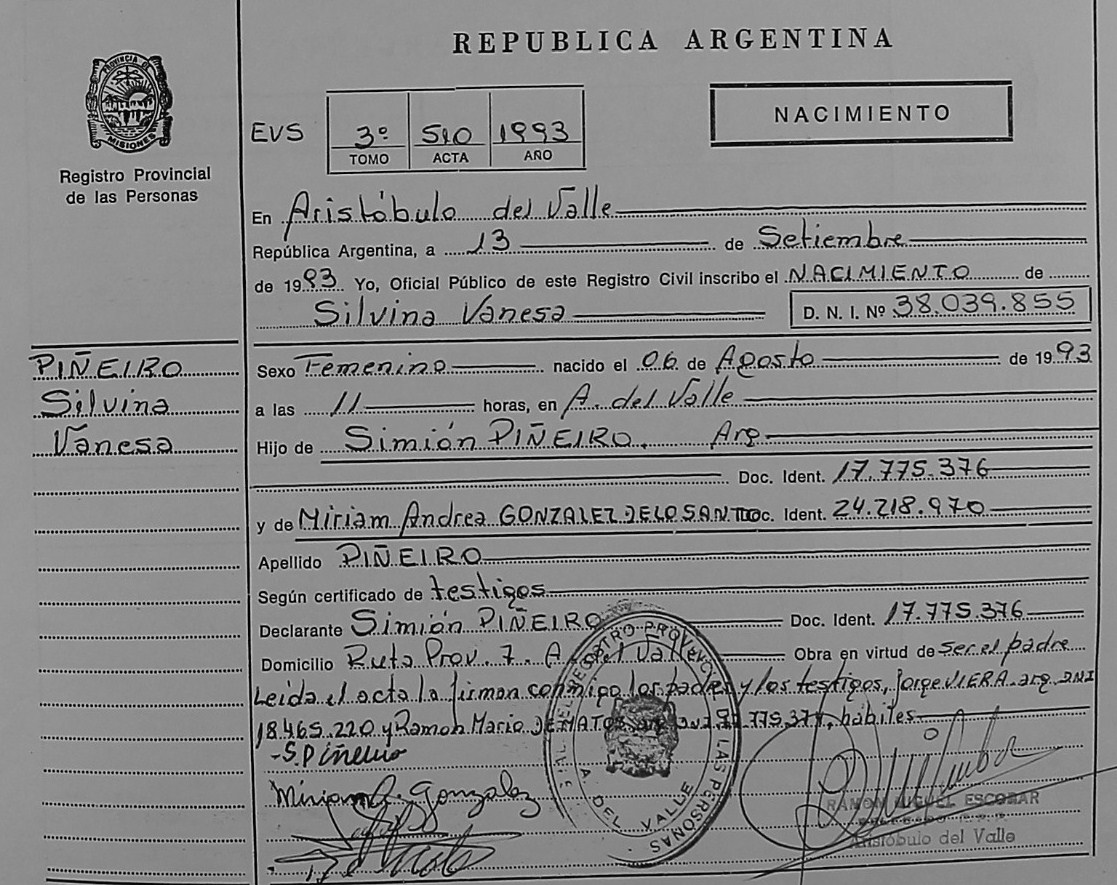 REPUBLICA ARGENTINA
PROVINCIA DE MISIONES
Registro Provincial
de las Personas
NACIMIENTO
EVS 3º 510 1993
TOMO ACTA AÑO
En Aristóbulo del Valle
República Argentina, a 13 de Setiembre
de 1993 Yo, Oficial Público de este Registro Civil inscribo el NACIMIENTO de
Silvina Vanesa D. N. I. Nº 38.039.855
PIÑEIRO
Silvina
Vanesa
Sexo Femenino nacido el 06 de Agosto de 1993
a las 11 horas, en A. del Valle
Hijo de Simión PIÑEIRO. Arg
Doc. Ident. 17.775.376
y de Miriam Andrea GONZALEZ DELOSANTO Doc. Ident. 24.218.970
Apellido PIÑEIRO
Según certificado de testigos
Declarante Simión PIÑEIRO Doc. Ident. 17.775.376
Domicilio Ruta Prov. 7. A. del Valle Obra en virtud de ser el padre
Leida el acta la firman conmigo los padres y los testigos, Jorge VIERA. arg. DNI
18.465.220 y Ramon Mario DEMATOS habiles
S. Piñeiro
Miriam A. Gonzalez
REGISTRO PROVINCIAL DE LAS PERSONAS
A. DEL VALLE
RAMON MIGUEL ESCOBAR
Aristóbulo del Valle